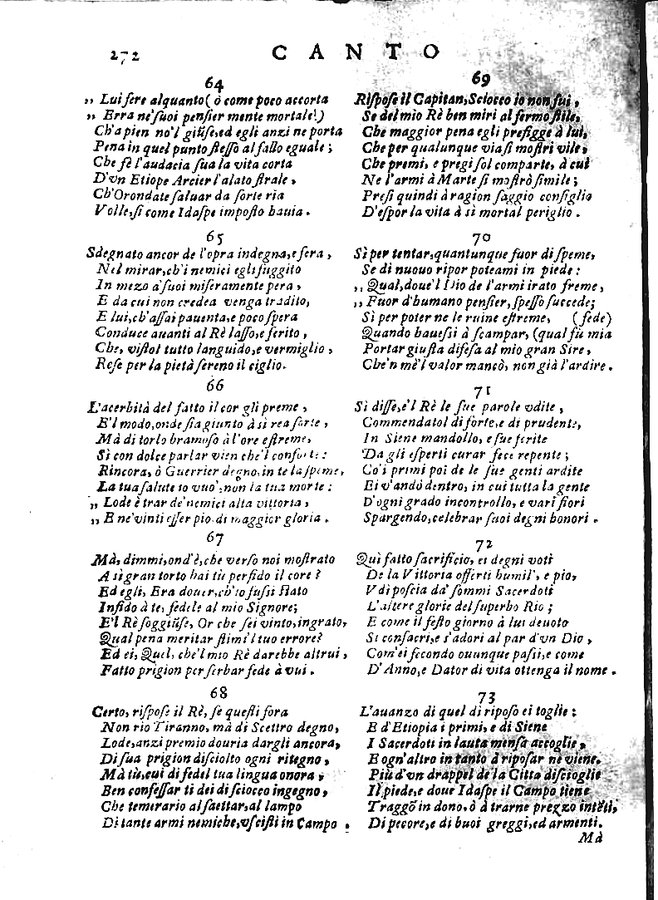 272 CANTO
64
„ Lui fere alquanto ( ò come poco accorta
„ Erra ne' suoi pensier mente mortale!)
Ch'a pien no'l giũse, ed egli anzi ne porta
Pena in quel punto stesso al fallo eguale ;
Che fè l'audacia sua la vita corta
D'vn Etiope Arcier l'alato strale ,
Ch'Orondate saluar da sorte ria
Volle, sì come Idaspe imposto hauia .
65
Sdegnato ancor de l'opra indegna, e fera ,
Nel mirar, ch'i nemici egli fuggito
In mezo a' suoi miseramente pera ,
E da cui non credea venga tradito,
E lui, ch'assai pauenta, e poco spera
Conduce auanti al Rè lasso, e ferito ,
Che, vistol tutto languido, e vermiglio ,
Rese per la pietà sereno il ciglio.
66
L'acerbità del fatto il cor gli preme ,
E'l modo, onde sia giunto à sì rea sorte ,
Mà di torlo bramoso à l'ore estreme,
Sì con dolce parlar vien che'l conforte :
Rincora, ò Guerrier degno, in te la speme,
La tua salute io vuo', non la tua morte :
„ Lode è trar de' nemici alta vittoria ,
„ E ne' vinti esser pio di maggior gloria .
67
Mà, dimmi, ond'è, che verso noi mostrato
A sì gran torto hai tù perfido il core ?
Ed egli, Era douer, ch'io fussi stato
Infido à te, fedele al mio Signore;
E'l Rè soggiũse, Or che sei vinto, ingrato,
Qual pena meritar stimi 'l tuo errore?
Ed ei, Quel, che'l mio Rè darebbe altrui ,
Fatto prigion per serbar fede à vui .
68
Certo, rispose il Rè, se questi fora
Non rio Tiranno, mà di Scettro degno,
Lode, anzi premio douria dargli ancora,
Di sua prigion disciolto ogni ritegno ,
Mà tù, cui di fedel tua lingua onora ,
Ben confessar ti dei di sciocco ingegno,
Che temerario al saettar, al lampo
Di tante armi nemiche, vscisti in Campo .
69
Rispose il Capitan, Sciocco io non fui ,
Se del mio Rè ben miri al fermo stile,
Che maggior pena egli prefigge à lui,
Che per qualunque via si mostri vile,
Che premi, e pregi sol comparte, à cui
Ne l'armi à Marte si mostrò simile ;
Presi quindi à ragion saggio consiglio
D'espor la vita à sì mortal periglio .
70
Sì per tentar, quantunque fuor di speme,
Se di nuouo ripor poteami in piede :
„ Qual, doue'l Dio de l'armi irato freme,
„ Fuor d'humano pensier, spesso succede;
Sì per poter ne le ruine estreme, ( fede)
Quando hauessi à scampar, (qual fù mia
Portar giusta difesa al mio gran Sire ,
Che'n me'l valor mancò, non già l'ardire .
71
Sì disse, e'l Rè le sue parole vdite ,
Commendatol di forte, e di prudente,
In Siene mandollo, e sue ferite
Da gli esperti curar fece repente ;
Co' i primi poi de le sue genti ardite
Ei v'andò dentro, in cui tutta la gente
D'ogni grado incontrollo, e vari fiori
Spargendo, celebrar suoi degni honori .
72
Quì fatto sacrificio, et degni voti
De la Vittoria offerti humil', e pio,
V dì poscia da' sommi Sacerdoti
L'altere glorie del superbo Rio ;
E come il festo giorno à lui deuoto
Si consacri, e s'adori al par d'vn Dio ,
Com'ei fecondo ounque passi, e come
D'Anno, e Dator di vita ottenga il nome .
73
L'auanzo di quel dì riposo ei toglie :
E d'Etiopia i primi, e di Siene
I Sacerdoti in lauta mensa accoglie ,
E ogn'altro in tanto à riposar nè viene.
Più d'vn drappel de la Città discioglie
Il piede, e doue Idaspe il Campo tiene
Traggõ in dono, ò à trarne prezzo intẽti,
Di pecore, e di buoi greggi, ed armenti.
Mà